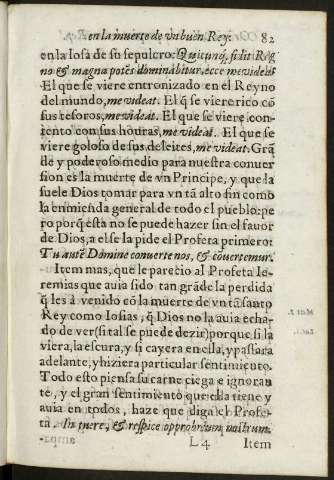 en la muerte de vn buen Rey. 82
en la losa de su sepulcro: Quicunq, sidit Reg
no & magna potes dominabitur, ecce me videat
El que se viere entronizado en el Reyno
del mundo, me videat. El q̃ se viere rico cõ
sus tesoros, me videat. El que se viere con-
tento con sus honras, me videat. El que se
viere goloso de sus deleites, me videat. Grã
de y poderoso medio para nuestra conuer
sion es la muerte de vn Principe, y que la
suele Dios tomar para vn tã alto fin como
la enmienda general de todo el pueblo: pe
ro porq̃ esta no se puede hazer sin el fauor
de Dios, a else la pide el Profeta primero:
Tu autẽ Domine conuerte nos, & cõuertemur.
Item mas, que le parecio al Profeta Ie-
remias que auia sido tan grãde la perdida
q̃ les à venido cõ la muerte de vn tã santo
Rey como Iosias, q̃ Dios no la auia echa-
do de ver (si tal se puede dezir) porque si la
viera, la escura, y si cayera en ella, y passara
adelante, y hiziera particular sentimiẽto.
Todo esto piensa su carne ciega e ignoran
te, y el gran sentimiento que ella tiene y
auia en todos, haze que diga el Profe-
ta. Intuere, & respice opprobrium nostrum.
L 4 Item